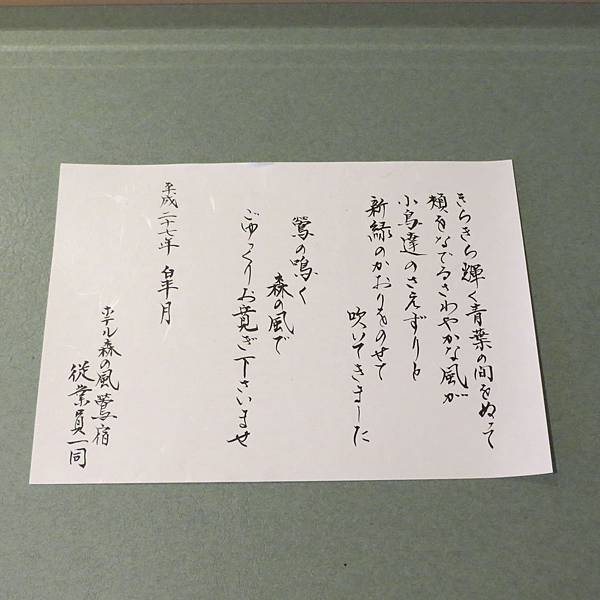 きらきら輝く青葉の間をぬって
頬をなでるさわやかな風が
小鳥達のさえずりと
新緑のかおりをのせて
吹いてきました
鶯の鳴く
森の風で
ごゆっくりお寛ぎ下さいませ
平成二十七年 皐月
ホテル森の風鶯宿
従業員一同